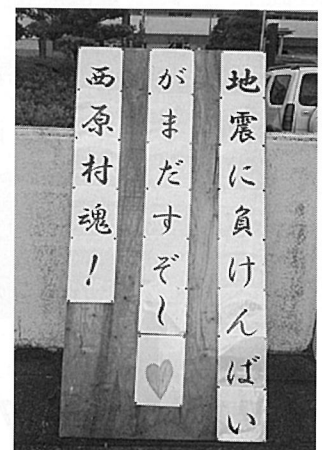 地震に負けんばい
がまだすぞー♥
西原村魂！